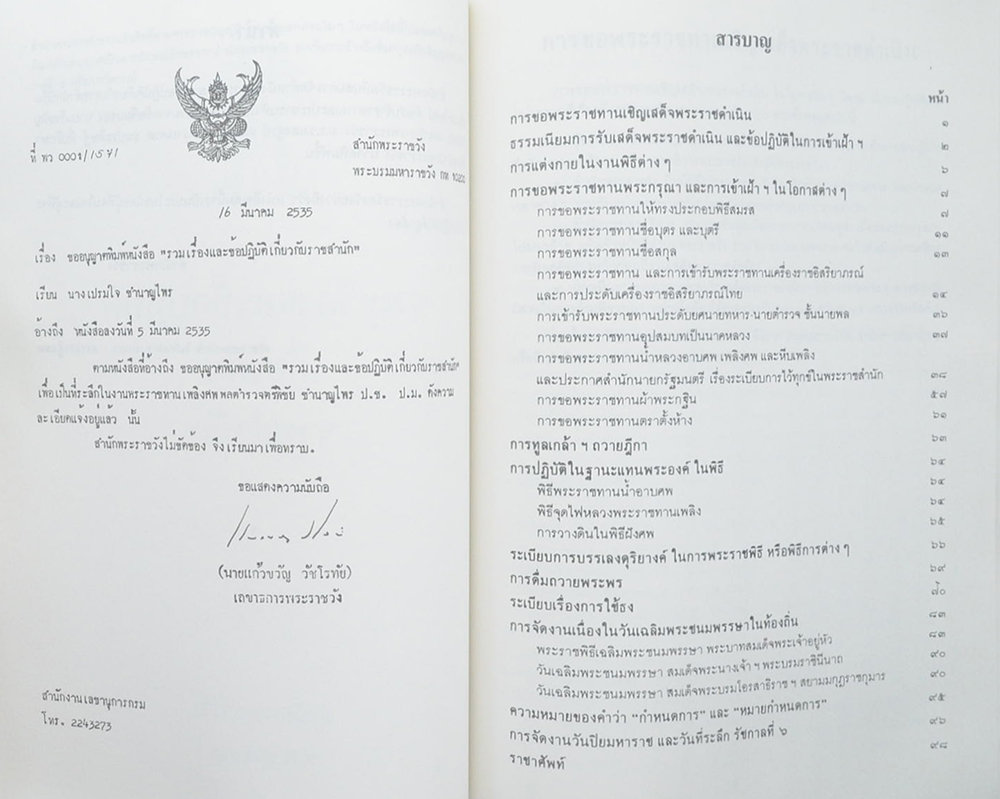 ที่ พว 0001/1571
สำนักพระราชวัง
พระบรมมหาราชวัง กท 10200
16 มีนาคม 2535
เรื่อง ขออนุญาตพิมพ์หนังสือ "รวมเรื่องและข้อปฏิบัติเกี่ยวกับราชสำนัก"
เรียน นางเปรมใจ ชำนาญไพร
อ้างถึง หนังสือลงวันที่ 5 มีนาคม 2535
ตามหนังสือที่อ้างถึง ขออนุญาตพิมพ์หนังสือ "รวมเรื่องและข้อปฏิบัติเกี่ยวกับราชสำนัก"
เพื่อเป็นที่ระลึกในงานพระราชทานเพลิงศพ พลตำรวจตรีพิชัย ชำนาญไพร ป.ช. ป.ม. ดังความ
ละเอียดแจ้งอยู่แล้ว นั้น
สำนักพระราชวังไม่ขัดข้อง จึงเรียนมาเพื่อทราบ.
ขอแสดงความนับถือ
(นายแก้วขวัญ วัชโรทัย)
เลขาธิการพระราชวัง
สำนักงานเลขานุการกรม
โทร. 2243273
สารบาญ
หน้า
การขอพระราชทานเชิญเสด็จพระราชดำเนิน ๑
ธรรมเนียมการรับเสด็จพระราชดำเนิน และข้อปฏิบัติในการเข้าเฝ้า ฯ ๒
การแต่งกายในงานพิธีต่าง ๆ ๖
การขอพระราชทานพระกรุณา และการเข้าเฝ้า ฯ ในโอกาสต่าง ๆ ๗
การขอพระราชทานให้ทรงประกอบพิธีสมรส ๗
การขอพระราชทานชื่อบุตร และบุตรี ๑๑
การขอพระราชทานชื่อสกุล ๑๓
การขอพระราชทาน และการเข้ารับพระราชทานเครื่องราชอิสริยาภรณ์
และการประดับเครื่องราชอิสริยาภรณ์ไทย ๑๔
การเข้ารับพระราชทานประดับยศนายทหาร-นายตำรวจ ชั้นนายพล ๓๖
การขอพระราชทานอุปสมบทเป็นนาคหลวง ๓๗
การขอพระราชทานน้ำหลวงอาบศพ เพลิงศพ และหีบเพลิง
และประกาศสำนักนายกรัฐมนตรี เรื่องระเบียบการไว้ทุกข์ในพระราชสำนัก ๓๘
การขอพระราชทานผ้าพระกฐิน ๕๗
การขอพระราชทานตราตั้งห้าง ๖๑
การทูลเกล้า ฯ ถวายฎีกา ๖๓
การปฏิบัติในฐานะแทนพระองค์ ในพิธี ๖๔
พิธีพระราชทานน้ำอาบศพ ๖๔
พิธีจุดไฟหลวงพระราชทานเพลิง ๖๔
การวางดินในพิธีฝังศพ ๖๕
ระเบียบการบรรเลงดุริยางค์ ในการพระราชพิธี หรือพิธีการต่าง ๆ ๖๖
การดื่มถวายพระพร ๖๙
ระเบียบเรื่องการใช้ธง ๗๐
การจัดงานเนื่องในวันเฉลิมพระชนมพรรษาในท้องถิ่น ๘๓
พระราชพิธีเฉลิมพระชนมพรรษา พระบาทสมเด็จพระเจ้าอยู่หัว ๘๓
วันเฉลิมพระชนมพรรษา สมเด็จพระนางเจ้า ฯ พระบรมราชินีนาถ ๙๐
วันเฉลิมพระชนมพรรษา สมเด็จพระบรมโอรสาธิราช ฯ สยามมกุฎราชกุมาร ๙๐
ความหมายของคำว่า "กำหนดการ" และ "หมายกำหนดการ" ๙๕
การจัดงานวันปิยมหาราช และวันที่ระลึก รัชกาลที่ ๖ ๙๖
ราชาศัพท์ ๙๘